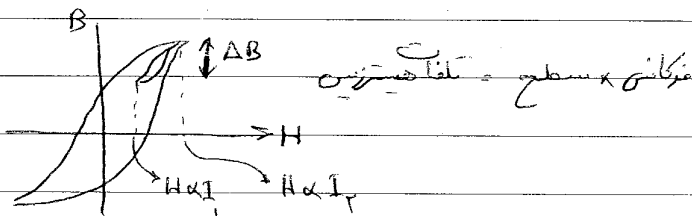 B
ΔB
تلفات هیسترزیس = سطح × فرکانس
H
H α I₁
H α I₂